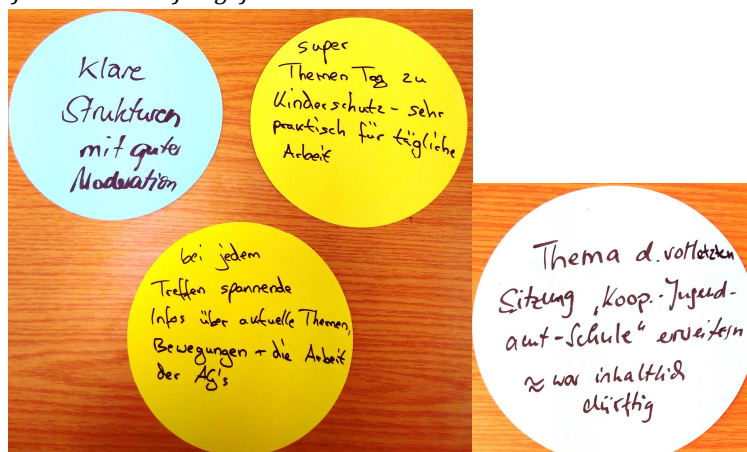 Klare
Strukturen
mit guter
Moderation
super
Themen Tag zu
Kinderschutz - sehr
praktisch für tägliche
Arbeit
bei jedem
Treffen spannende
Infos über aktuelle Themen,
Bewegungen + die Arbeit
der AG's
Thema d. vorletzten
Sitzung „Koop.-Jugend-
amt-Schule“ erweitern
≈ war inhaltlich
dürftig